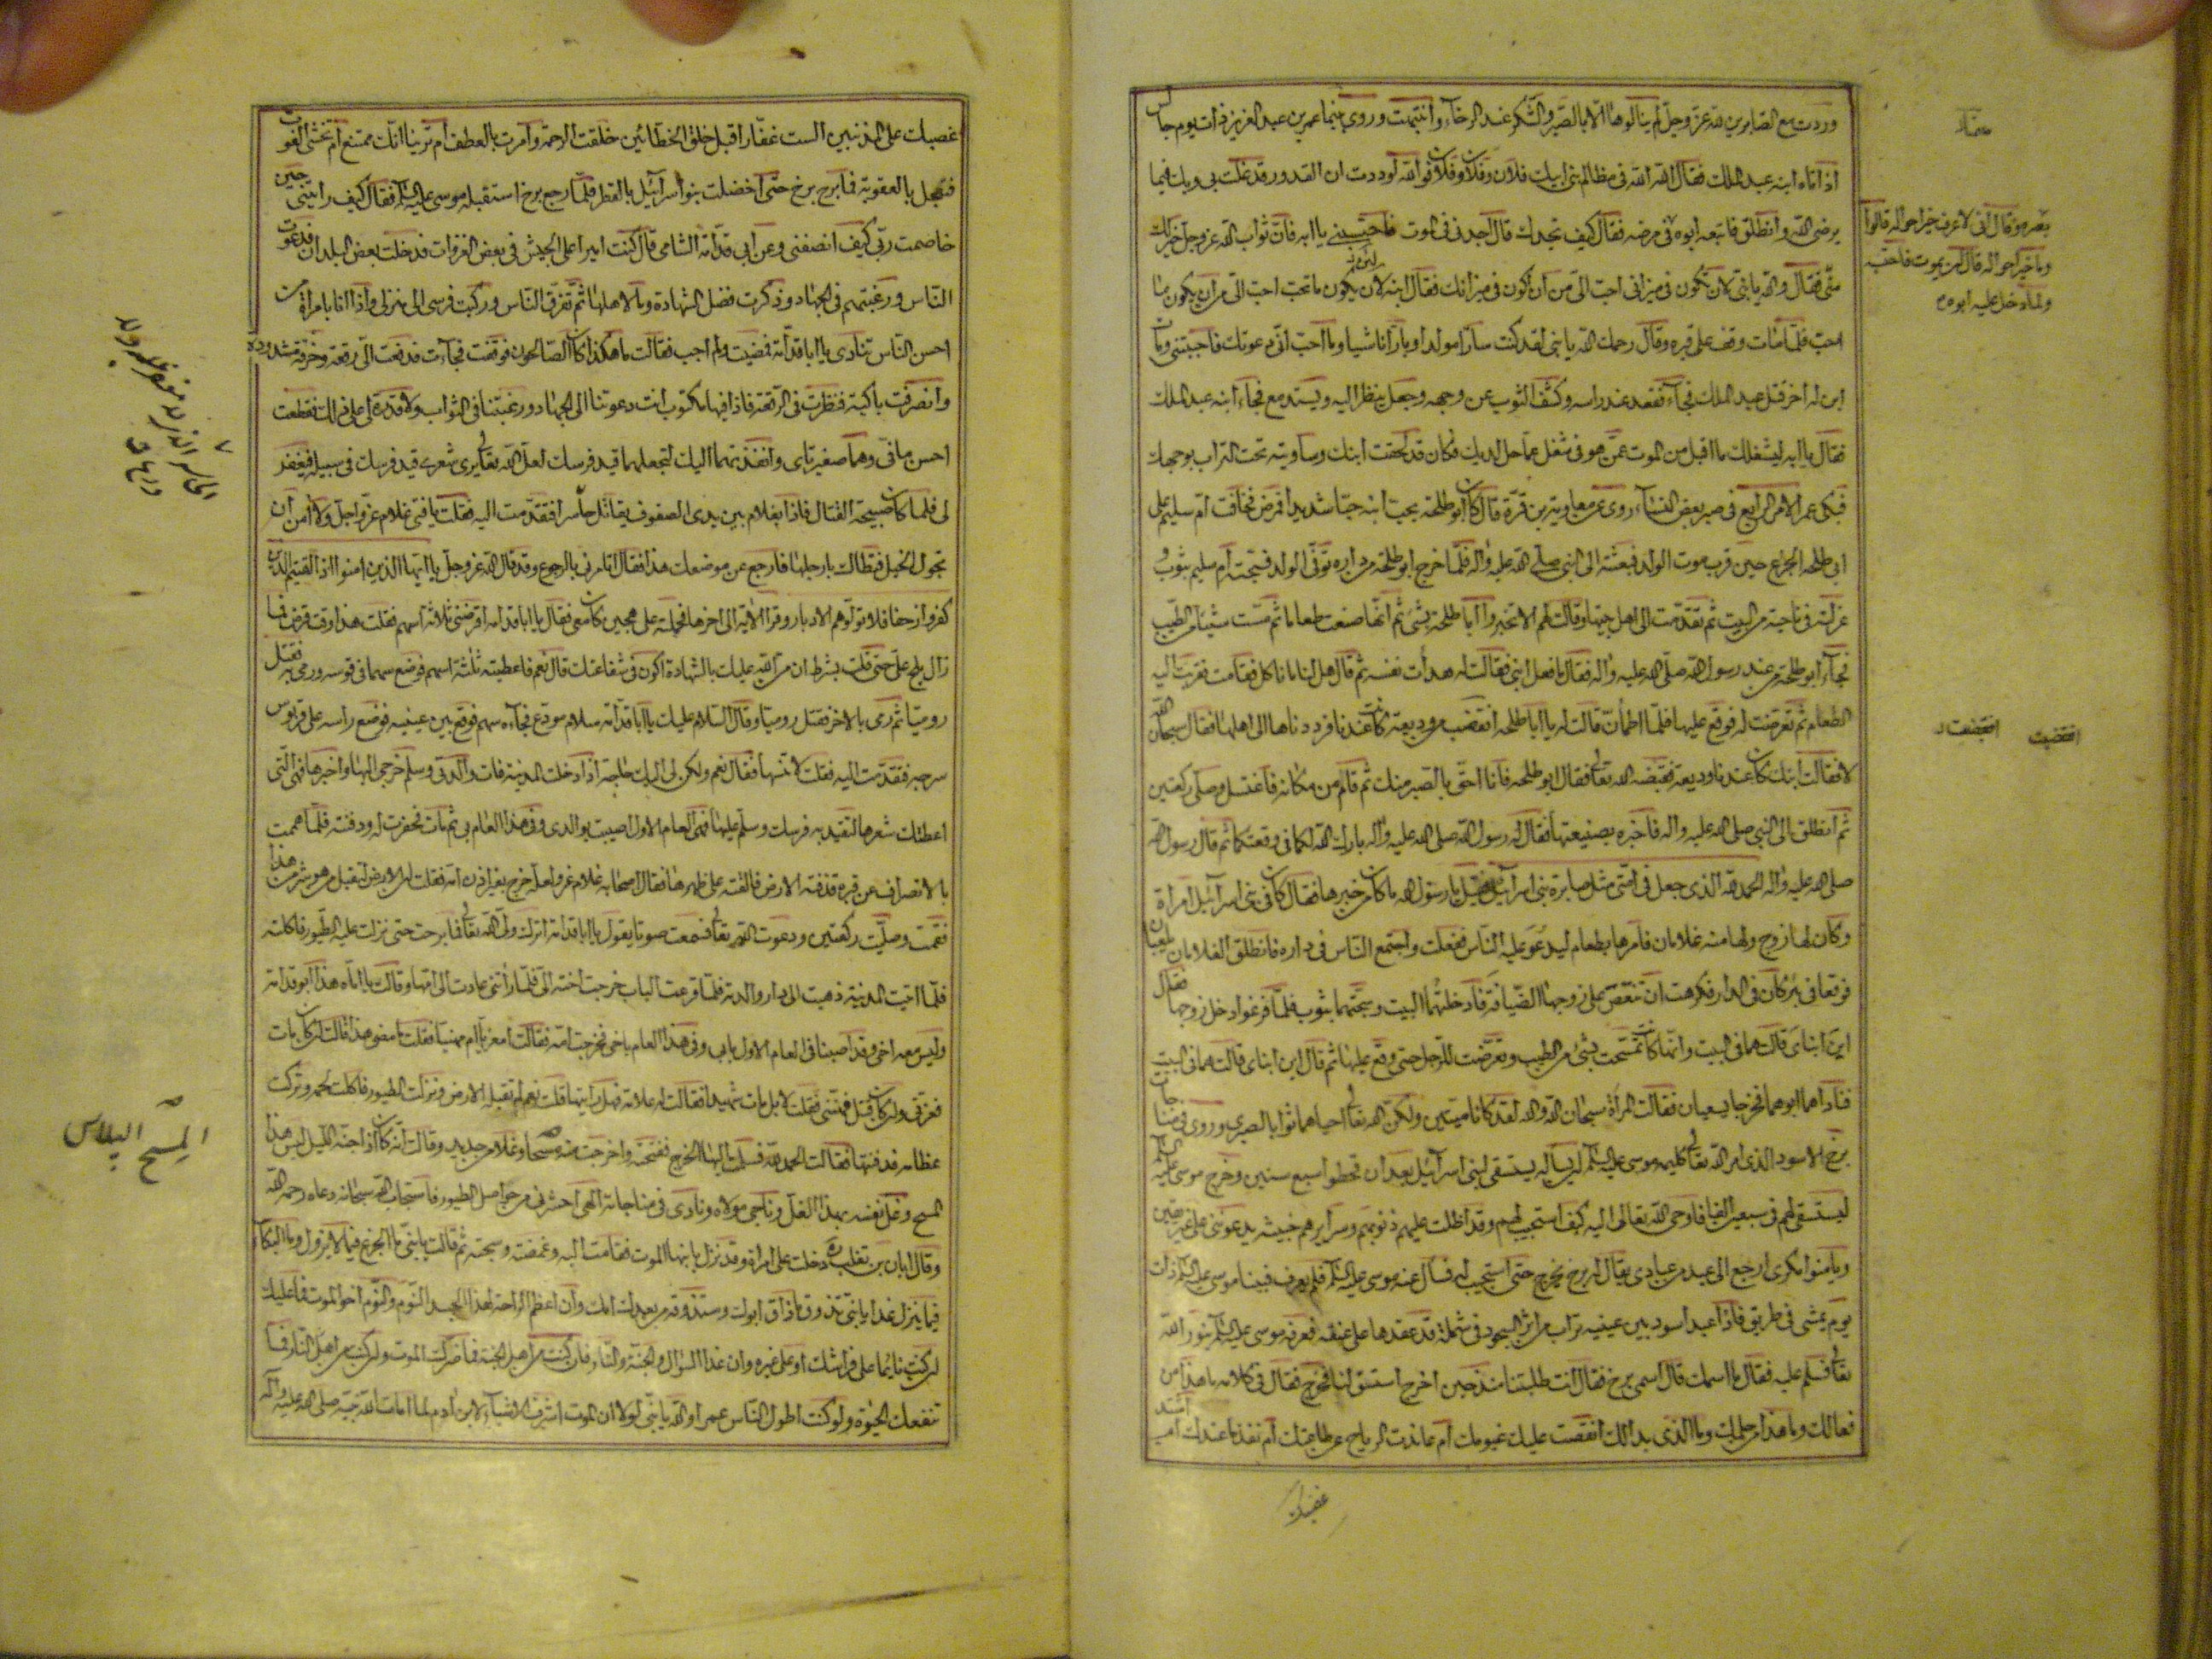 وردت مع الصابرين لله عز وجل لم ينالوها الا بالصبر والشكر عند الرخاء وانتهمت وروي فيما عمر بن عبد العزيز ذات يوم جالس
اذ اتاه ابنه عبد الملك فقال الله الله في مظالم بني ابيك فلان وفلان وفلان فوالله لوددت ان القدور قد غلت بي وبك فيما
يرضي الله وانطلق فاتبعه ابوه
في مرضه فقال كيف تجدك قال اجدني في الموت فاحتسبني يا ابه فان ثواب الله عز وجل خير لك
مني فقال والله يا بني لان تكون في ميزاني احب الي من ان اكون في ميزانك فقال ابنه لان يكون ما تحب احب الي من ان يكون ما
احب فلما مات وقف على قبره وقال رحمك الله يا بني لقد كنت سارا مولدا وبارا ناشيا وما احب اني دعوتك فاجبتني ومات
ابن له اخر قبل عبد الملك فجاء فقعد عند راسه وكشف الثوب عن وجهه وجعل ينظر اليه ويستدمع فجاء ابنه عبد الملك
فقال يا ابه ليشغلك ما اقبل من الموت عمن هو في شغل عما حل لديك فكان قد لحقت ابنك وساويته تحت التراب بوجهك
فبكى عمر الامر الرابع في صبر بعض النساء روى عن معاوية بن قرة قال كان ابو طلحة يحب ابنه حبا شديدا فمرض فخافت ام سليم على
ابي طلحه الجزع حين قرب موت الولد فبعثته الى النبي صلى الله عليه واله فلما خرج ابو طلحة من داره توفي الولد فسجته ام سليم بثوب و
عزلته في ناحية من البيت ثم تقدمت الى اهل بيتها وقالت لهم لا تخبروا ابا طلحة بشئ ثم انها صنعت طعاما ثم مست شيئا من الطيب
فجاء ابو طلحة من عند رسول الله صلى الله عليه واله فقال ما فعل ابني فقالت له هدأت نفسه ثم قال هل لنا ما ناكل فقامت فقربت اليه
الطعام ثم تعرضت له فوقع عليها فلما اطمأن قالت له يا ابا طلحه اتغضب من وديعة كانت عندنا فرددناها الى اهلها فقال سبحان الله
لا فقالت ابنك كان عندنا وديعة فقبضه الله تعالى فقال ابو طلحه فانا احق بالصبر منك ثم قام من مكانه فاغتسل وصلى ركعتين
ثم انطلق الى النبي صلى الله عليه واله فاخبره بصنيعتها فقال له رسول الله صلى الله عليه واله بارك الله لكما في وقعتكما ثم قال رسول الله
صلى الله عليه واله الحمد لله الذي جعل في امتي مثل صابرة بني اسرائيل فقيل يا رسول الله ما كان من خبرها فقال كان في بني اسرائيل امراة
وكان لها زوج ولها منه غلامان فامرها بطعام ليدعو عليه الناس ففعلت واجتمع الناس في داره فانطلق الغلامان يلعبان
فوقعا في بئر كان في الدار فكرهت ان تنغص على زوجها الضيافة فادخلتهما البيت وسجتهما بثوب فلما فرغوا دخل زوجها فقال
اين ابناى قالت هما في البيت وانها كانت تمسحت بشئ من الطيب وتعرضت للرجل حتى وقع عليها ثم قال اين ابناى قالت هما في البيت
فناداهما ابوهما فخرجا يسعيان فقالت المرأة سبحان الله والله لقد كانا ميتين ولكن الله تعالى احياهما ثوابا لصبري وروى في مناجات
برخ الاسود الذي امر الله تعالى كليمه موسى عليه السلم ان يساله يستسقي لبني اسرائيل بعد ان قحطوا سبع سنين وخرج موسى عليه السلم
ليستسقي لهم في سبعين الفا فاوحى الله تعالى اليه كيف استجيب لهم وقد اظلت عليهم ذنوبهم وسرايرهم خبيثه يدعونني على غير يقين
ويامنوا مكري ارجع الى عبد من عبادي يقال له برخ يخرج حتى استجيب له فسأل عنه موسى عليه السلم فلم يعرف فبينا موسى عليه السلم ذات
يوم يمشي في طريق فاذا عبد اسود بين عينيه تراب من اثر السجود في شملة قد عقدها على عنقه فعرفه موسى عليه السلم بنور الله
تعالى فسلم عليه فقال ما اسمك قال اسمي برخ فقال انت طلبتنا منذ حين اخرج استسق لنا فخرج فقال في كلامه ما هذا من
فعالك وما هذا من حلمك وما الذي بدا لك انقصت عليك غيومك ام عاندت الرياح عن طاعتك ام نفذ ما عندك ام اشتد
بصره وقال اني لاعرف خير احواله قالوا
وما خير احواله قال ان يموت فاحتسبه
ولما دخل عليه ابوه
غضبك
غضبك على المذنبين الست غفارا قبل خلق الخطائين خلقت الرحمة وامرت بالعطف ام ترينا انك ممتنع ام تخشى الفوت
فتعجل بالعقوبة فما برح برخ حتى اخضلت بنو اسرائيل بالقطر فلما رجع برخ استقبله موسى عليه السلم فقال كيف رايتني حين
خاصمت ربي كيف انصفني وعن ابي قدامة الشامي قال كنت اميرا على الجيش في بعض الغزوات فدخلت بعض البلدان فدعوت
الناس ورغبتهم في الجهاد وذكرت فضل الشهادة وما لاهلها ثم تفرق الناس وركبت فرسي الى منزلي واذا انا بامرأة من
احسن الناس تنادي يا ابا قدامة فمضيت ولم اجب فقالت ما هكذا كان الصالحون فوقفت فجاءت فدفعت الي رقعة وخرقة مشدودة
وانصرفت باكية فنظرت في الرقعة فاذا فيها مكتوب انت دعوتنا الى الجهاد ورغبتنا في الثواب ولا قدرة لي على ذلك فقطعت
احسن ما في وهما ضفيرتاى وانفذتهما اليك لتجعلهما قيد فرسك لعل الله تعالى يرى شعري قيد فرسك في سبيله فيغفر
لي فلما كان صبيحة القتال فاذا بغلام بين يدي الصفوف يقاتل حاسرا فتقدمت اليه فقلت يا فتى غلام غر راجل ولا امن ان
تجول الخيل فتطاك بارجلها فارجع عن موضعك هذا فقال اتامرني بالرجوع وقد قال الله عز وجل يا ايها الذين امنوا اذا لقيتم الذين
كفروا زحفا فلا تولوهم الادبار وقرا الاية الى اخرها فحملته على هجين كان معي فقال يا ابا قدامه اقرضني ثلاثة اسهم فقلت هذا وقت قرض فما
زال يلح علي حتى قلت بشرط ان من الله عليك بالشهادة اكون في شفاعتك قال نعم فاعطيته ثلثة اسهم فوضع سهما في قوسه ورمى به فقتل
روميا ثم رمى بالاخر فقتل روميا وقال السلام عليك يا ابا قدامة سلام مودع فجاءه سهم فوقع بين عينيه فوضع راسه على قربوس
سرجه فتقدمت اليه فقلت لا تنسها فقال نعم ولكن لي اليك حاجة اذا دخلت المدينة فات والدتي وسلم خرجي اليها واخبرها فهي التي
اعطتك شعرها لتقيد به فرسك وسلم عليها فهي العام الاول اصيبت بوالدي وفي هذا العام بي ثم مات فحفرت له ودفنته فلما هممت
بالانصراف عن قبره قذفته الارض فالقته على ظهرها فقال اصحابه غلام غر ولعله خرج بغير اذن امه فقلت ان الارض لتقبل من هو شر من هذا
فقمت وصليت ركعتين ودعوت الله تعالى فسمعت صوتا يقول يا ابا قدامة اترك ولي الله تعالى فما برحت حتى نزلت عليه الطيور فاكلته
فلما اتيت المدينة ذهبت الى دار والدته فلما قرعت الباب خرجت اخته الي فلما رأتني عادت الى امها وقالت يا اماه هذا ابو قدامة
وليس معه اخي وقد اصبنا في العام الاول بابي وفي هذا العام باخي فخرجت امه فقالت امعزيا ام مهنيا فقلت ما معنى هذا قالت ان كان مات
فعزني وان كان قتل فهنني فقلت لا بل مات شهيدا فقالت له علامة فهل رايتها قلت نعم لم تقبله الارض ونزلت الطيور فاكلت لحمه وتركت
عظامه فدفنتها فقالت الحمد لله فسلمت اليها الخرج ففتحته واخرجت منه مسحا وغلا من حديد وقالت انه كان اذا جنه الليل لبس هذا
المسح وغل نفسه بهذا الغل وناجى مولاه ونادى في مناجاته الهي احشرني من حواصل الطيور فاستجاب الله سبحانه دعاه رحمه الله
وقال ابان بن تغلب ره دخلت على امراة وقد نزل بابنها الموت فقامت اليه وغمضته وسجته ثم قالت يا بني ما الجزع فيما لا يزول وما البكاء
فيما ينزل غدا يا بني تذوق ما ذاق ابوك وستذوقه من بعدك امك وان اعظم الراحة لهذا الجسد النوم والنوم اخو الموت فما عليك
ان كنت نائما على فراشك او على غيره وان غدا السؤال والجنة والنار فان كنت من اهل الجنة فما ضرك الموت وان كنت من اهل النار فما
تنفعك الحيوة ولو كنت اطول الناس عمرا والله يا بني لولا ان الموت اشرف الاشياء لابن ادم لما امات الله نبيه صلى الله عليه واله
المسح البلاس